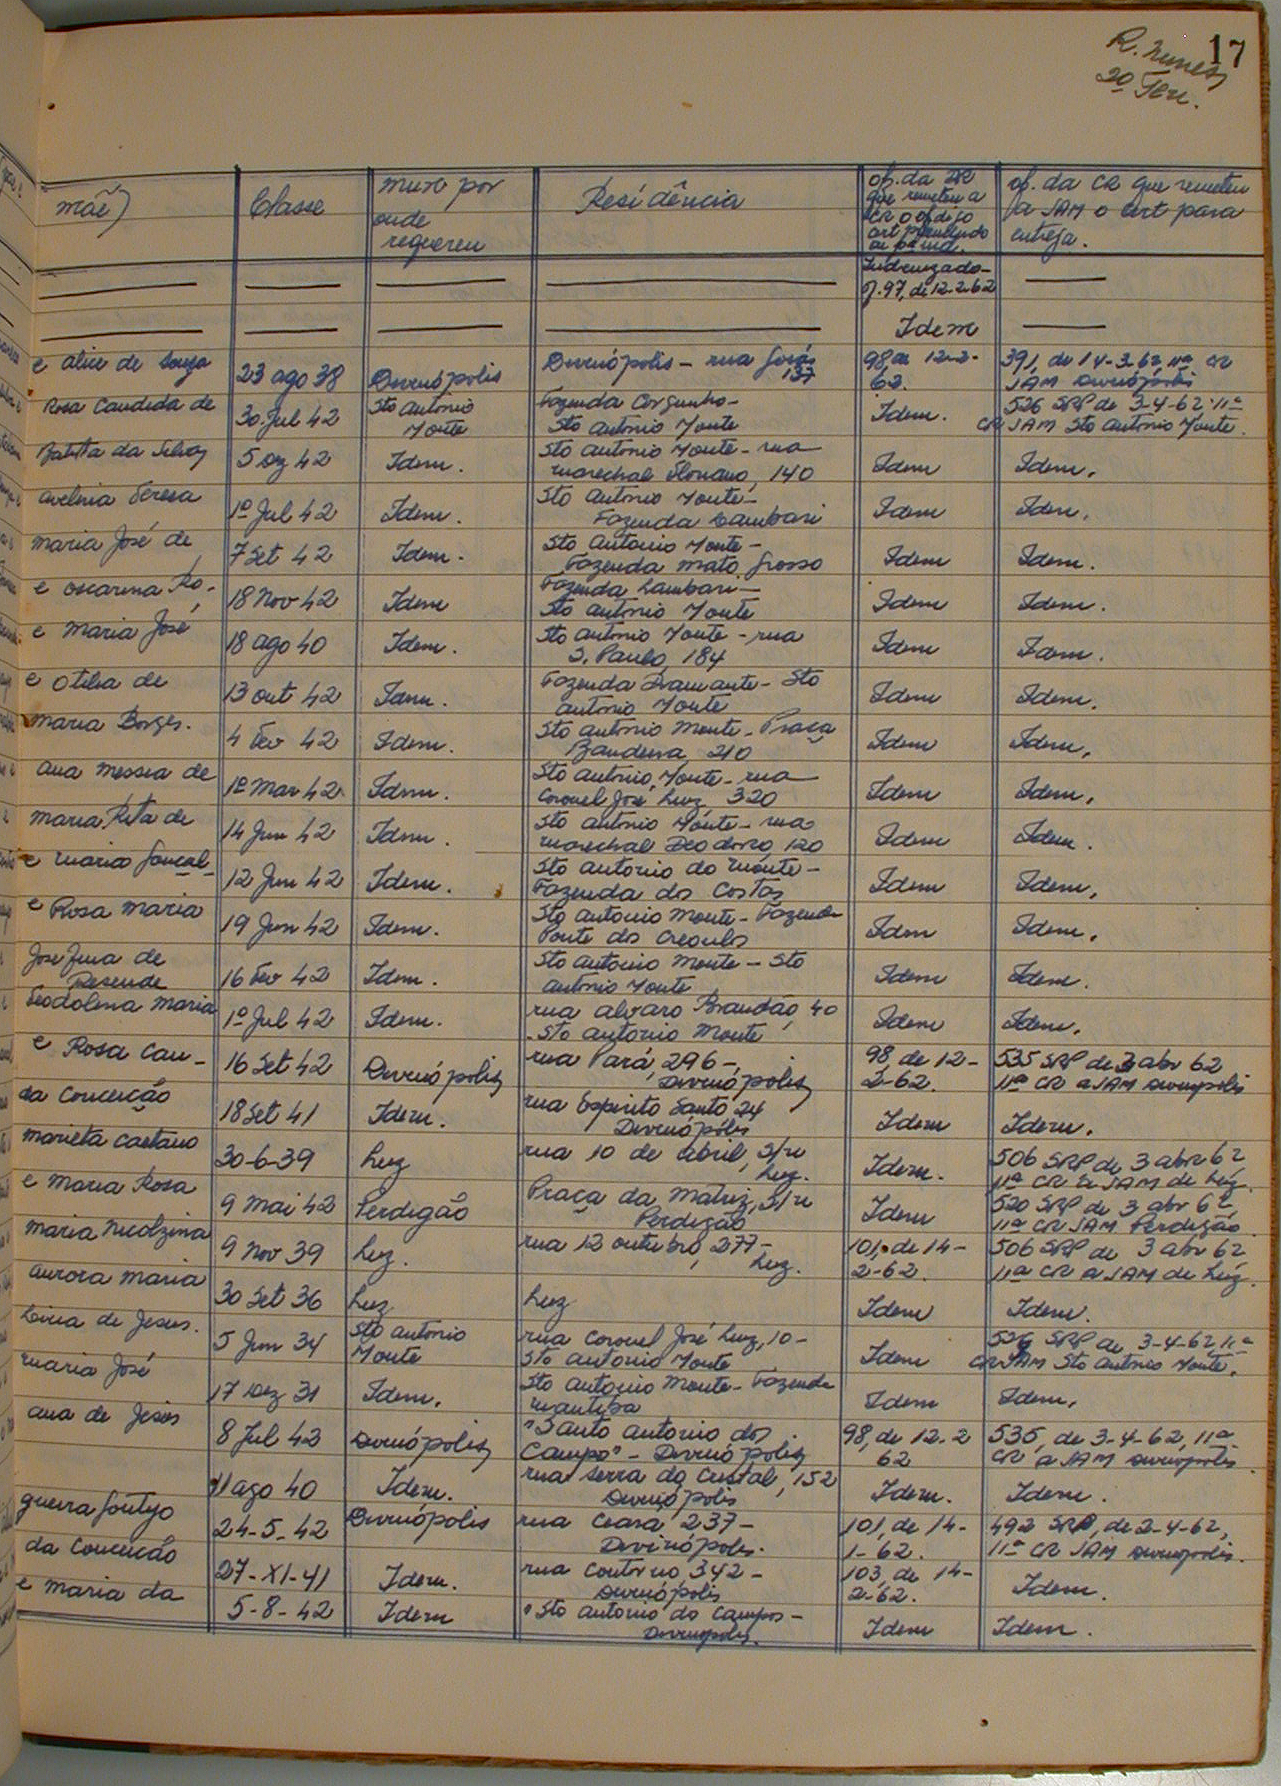 17
R. Nunes
2º Ten.
mãe) Classe Mun por onde requereu Residência of. da DR que remeteu a CR o of. of. da CR que remeteu a JAM o cert para entrega.
Indenizado of. 97, de 12-2-62
Idem
e Alice de Souza 23 ago 38 Divinópolis Divinópolis - rua Goiás 137 98, de 12-2-62. 391, de 14-3-62 11ª CR JAM Divinópolis
Rosa Candida de 30 Jul 42 Sto Antonio Monte Fazenda Corguinho - Sto Antonio Monte Idem. 526 SRP de 3-4-62 11ª CR JAM Sto Antonio Monte.
Batista da Silva 5 Dez 42 Idem. Sto Antonio Monte - rua Marechal Floriano, 140 Idem Idem.
Avelina Teresa 1º Jul 42 Idem. Sto Antonio Monte - Fazenda Cambari Idem Idem.
Maria José de 7 Set 42 Idem. Sto Antonio Monte - Fazenda Mato Grosso Idem Idem.
e Oscarina Ro- 18 Nov 42 Idem Fazenda Lambari - Sto Antonio Monte Idem Idem.
e Maria José 18 ago 40 Idem. Sto Antonio Monte - rua S. Paulo, 184 Idem Idem.
e Otilia de 13 out 42 Idem. Fazenda Diamante - Sto Antonio Monte Idem Idem.
Maria Borges. 4 Fev 42 Idem. Sto Antonio Monte - Praça Bandeira, 210 Idem Idem.
Ana Messia de 1º Mar 42 Idem. Sto Antonio Monte - rua Coronel José Luiz, 320 Idem Idem.
Maria Rita de 14 Jun 42 Idem. Sto Antonio Monte - rua Marechal Deodoro, 120 Idem Idem.
e Maria Gonçal- 12 Jun 42 Idem. Sto Antonio do Monte - Fazenda dos Costas Idem Idem.
e Rosa Maria 19 Jun 42 Idem. Sto Antonio Monte - Fazenda Ponte dos Creoulos Idem Idem.
Josefina de Resende 16 Fev 42 Idem. Sto Antonio Monte - Sto Antonio Monte Idem Idem.
Teodolina Maria 1º Jul 42 Idem. rua Alvaro Brandão, 40 - Sto Antonio Monte Idem Idem.
e Rosa Can- 16 Set 42 Divinópolis rua Pará, 296 - Divinópolis 98, de 12-2-62. 535 SRP de 3 abr 62 11ª CR a JAM Divinópolis
da Conceição 18 Set 41 Idem. rua Espirito Santo 24 Divinópolis Idem Idem.
Marieta Caetano 30-6-39 Luz rua 10 de abril, s/n Luz. Idem. 506 SRP de 3 abr 62 11ª CR a JAM de Luz.
e Maria Rosa 9 Mai 42 Perdigão Praça da Matriz, s/n Perdigão Idem 520 SRP de 3 abr 62, 11ª CR JAM Perdigão
Maria Nicolzina 9 Nov 39 Luz. rua 12 outubro, 277 - Luz. 101, de 14-2-62. 506 SRP de 3 abr 62 11ª CR a JAM de Luz.
Aurora Maria 30 Set 36 Luz Luz Idem Idem.
Lívia de Jesus. 5 Jun 34 Sto Antonio Monte rua Coronel José Luiz, 10 - Sto Antonio Monte Idem 526 SRP de 3-4-62 11ª CR JAM Sto Antonio Monte.
Maria José 17 Dez 31 Idem. Sto Antonio Monte - Fazenda Idem Idem.
Ana de Jesus 8 Jul 42 Divinópolis "Santo Antonio dos Campos" - Divinópolis 98, de 12-2 62 535, de 3-4-62, 11ª CR a JAM Divinópolis.
11 ago 40 Idem. rua Serra do Cristal, 152 Divinópolis Idem. Idem.
24-5-42 Divinópolis rua Ceará 237 - Divinópolis. 101, de 14-1-62. 492 SRP, de 2-4-62, 11ª CR JAM Divinópolis.
da Conceição 27-XI-41 Idem. rua Contorno, 342 - Divinópolis 103, de 14-2-62. Idem.
e Maria da 5-8-42 Idem "Sto Antonio do Campos - Divinópolis. Idem Idem.